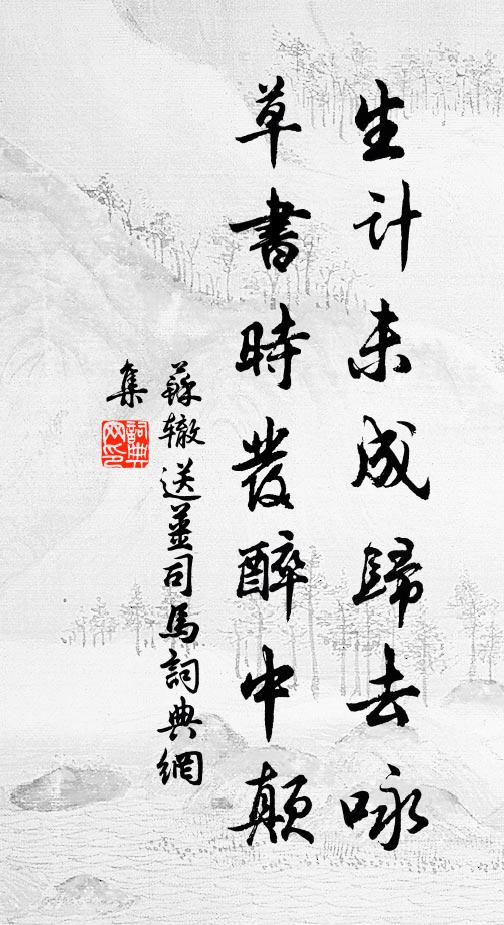 生計未成歸去咏
草書時發醉中顛
蘇轍送姜司馬詞典網
集
詞典
网印